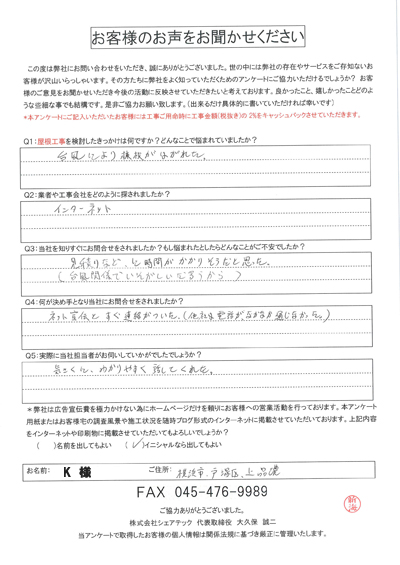 お客様のお声をお聞かせください
この度は弊社にお問い合わせをいただき、誠にありがとうございました。世の中には弊社の存在やサービスをご存知ないお
客様が沢山いらっしゃいます。その方たちに弊社をよく知っていただくためのアンケートにご協力いただけるでしょうか？ お客
様のご意見をお聞かせいただき今後の活動に反映させていただきたいと考えております。良かったこと、嬉しかったことどのよ
うな些細な事でも結構です。是非ご協力お願い致します。（出来るだけ具体的に書いていただければ幸いです）
*本アンケートにご記入いただいたお客様には工事ご用命時に工事金額（税抜き）の2%をキャッシュバックさせていただきます。
Q1：屋根工事を検討したきっかけは何ですか？どんなことで悩まれていましたか？
台風により棟板がはがれた。
Q2：業者や工事会社をどのように探されましたか？
インターネット
Q3：当社を知りすぐにお問合せをされましたか？もし悩まれたとしたらどんなことがご不安でしたか？
見積りなど、と時間がかかりそうだと思った。
（台風関係でいそがしいと思うから）
Q4：何が決め手となり当社にお問合せをされましたか？
ネット宣伝とすぐ連絡がついた。（他社は電話がなかなか通じなかった。）
Q5：実際に当社担当者がお伺いしていかがでしたでしょうか？
わかりやすく話してくれた。
*弊社は広告宣伝費を極力かけない為にホームページだけを頼りにお客様への営業活動を行っております。本アンケート
用紙またはお客様宅の調査風景や施工状況を随時ブログ形式のインターネットに掲載させていただいております。上記内容
をインターネットや印刷物に掲載させていただいてもよろしいでしょうか？
（　）名前を出してもよい　（✓）イニシャルなら出してもよい
お名前： K 様 ご住所： 横浜市戸塚区上品濃
FAX 045-476-9989
ご協力ありがとうございました。
株式会社シェアテック 代表取締役 大久保 誠二
当アンケートで取得したお客様の個人情報は関係法規に基づき厳正に管理いたします。